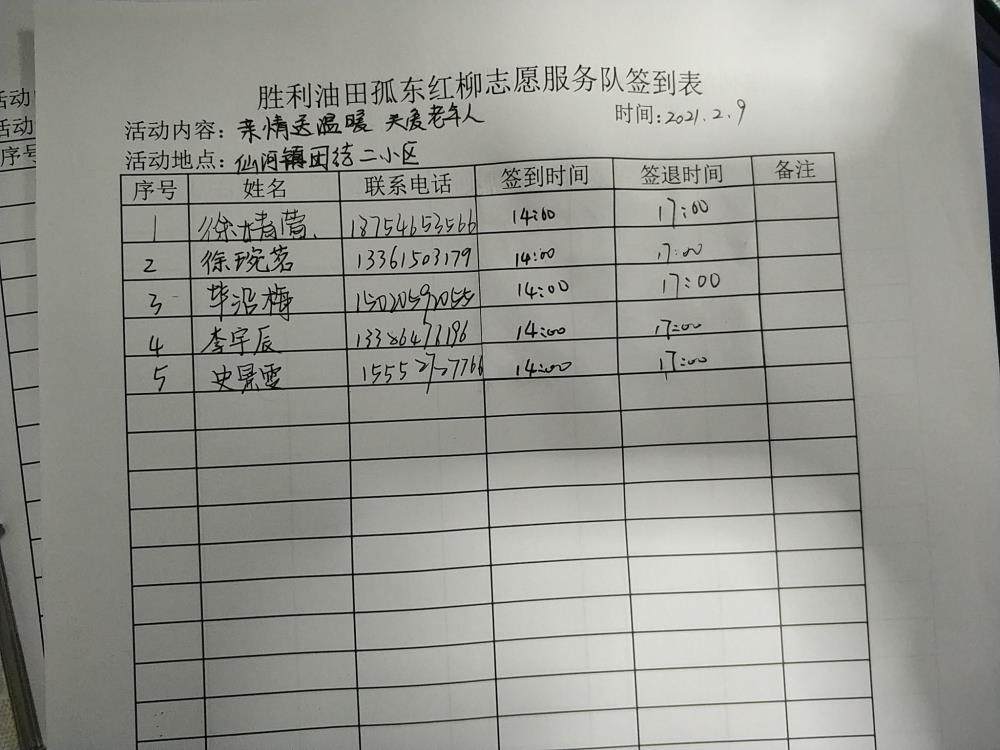 胜利油田孤东红柳志愿服务队签到表
活动内容：亲情送温暖 关爱老年人 时间:2021.2.9
活动地点：仙河镇团结二小区
序号 姓名 联系电话 签到时间 签退时间 备注
1 徐婧萱 18754653566 14:00 17:00
2 徐琬茗 13361503179 14:00 17:00
3 毕沿梅 15020592055 14:00 17:00
4 李宇辰 14:00 17:00
5 史景雯 14:00 17:00
活动
活动
序号